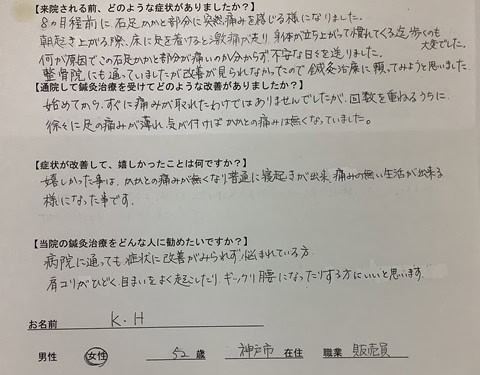 【来院される前、どのような症状がありましたか？】
8ヵ月程前に右足かかと部分に突然痛みを感じる様になりました。
朝起き上がる際、床に足を着けると激痛が走り、身体が立ち上がって慣れてくる迄歩くのも
大変でした。
何が原因でこの右足かかと部分が痛いのか分からず、不安な日々を送りました。
整骨院にも通っていましたが改善が見られなかったので鍼灸治療に頼ってみようと思いました。
【通院して鍼灸治療を受けてどのような改善がありましたか？】
始めてから、すぐに痛みが取れたわけではありませんでしたが、回数を重ねるうちに、
徐々に足の痛みが薄れ、気が付けばかかとの痛みは無くなっていました。
【症状が改善して、嬉しかったことは何ですか？】
嬉しかった事は、かかとの痛みが無くなり普通に寝起きが出来、痛みの無い生活が出来る
様になった事です。
【当院の鍼灸治療をどんな人に勧めたいですか？】
病院に通っても症状に改善がみられず、悩まれている方
肩コリがひどく、目まいをよく起こしたり、ギックリ腰になったりする方にいいと思います。
お名前 K・H
男性 女性 52 歳 神戸市 在住 職業 販売員